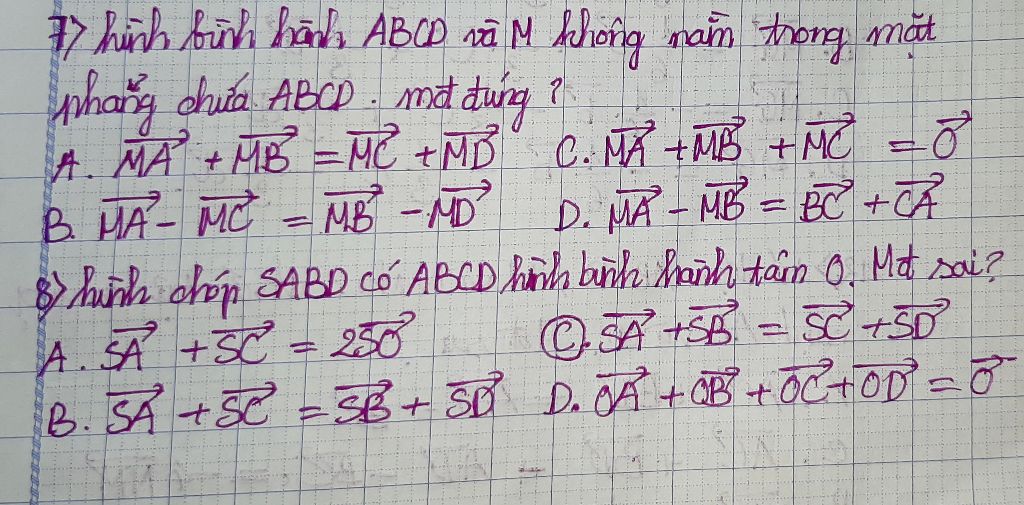 7) hình bình hành ABCD và M không nằm trong mặt
phẳng chứa ABCD. mđ đúng?
A. $\overrightarrow{MA} + \overrightarrow{MB} = \overrightarrow{MC} + \overrightarrow{MD}$ C. $\overrightarrow{MA} + \overrightarrow{MB} + \overrightarrow{MC} = \overrightarrow{O}$
B. $\overrightarrow{MA} - \overrightarrow{MC} = \overrightarrow{MB} - \overrightarrow{MD}$ D. $\overrightarrow{MA} - \overrightarrow{MB} = \overrightarrow{BC} + \overrightarrow{CA}$
8) hình chóp SABD có ABCD hình bình hành tâm O. Mđ sai?
A. $\overrightarrow{SA} + \overrightarrow{SC} = 2\overrightarrow{SO}$ C. $\overrightarrow{SA} + \overrightarrow{SB} = \overrightarrow{SC} + \overrightarrow{SD}$
B. $\overrightarrow{SA} + \overrightarrow{SC} = \overrightarrow{SB} + \overrightarrow{SD}$ D. $\overrightarrow{OA} + \overrightarrow{OB} + \overrightarrow{OC} + \overrightarrow{OD} = \overrightarrow{O}$